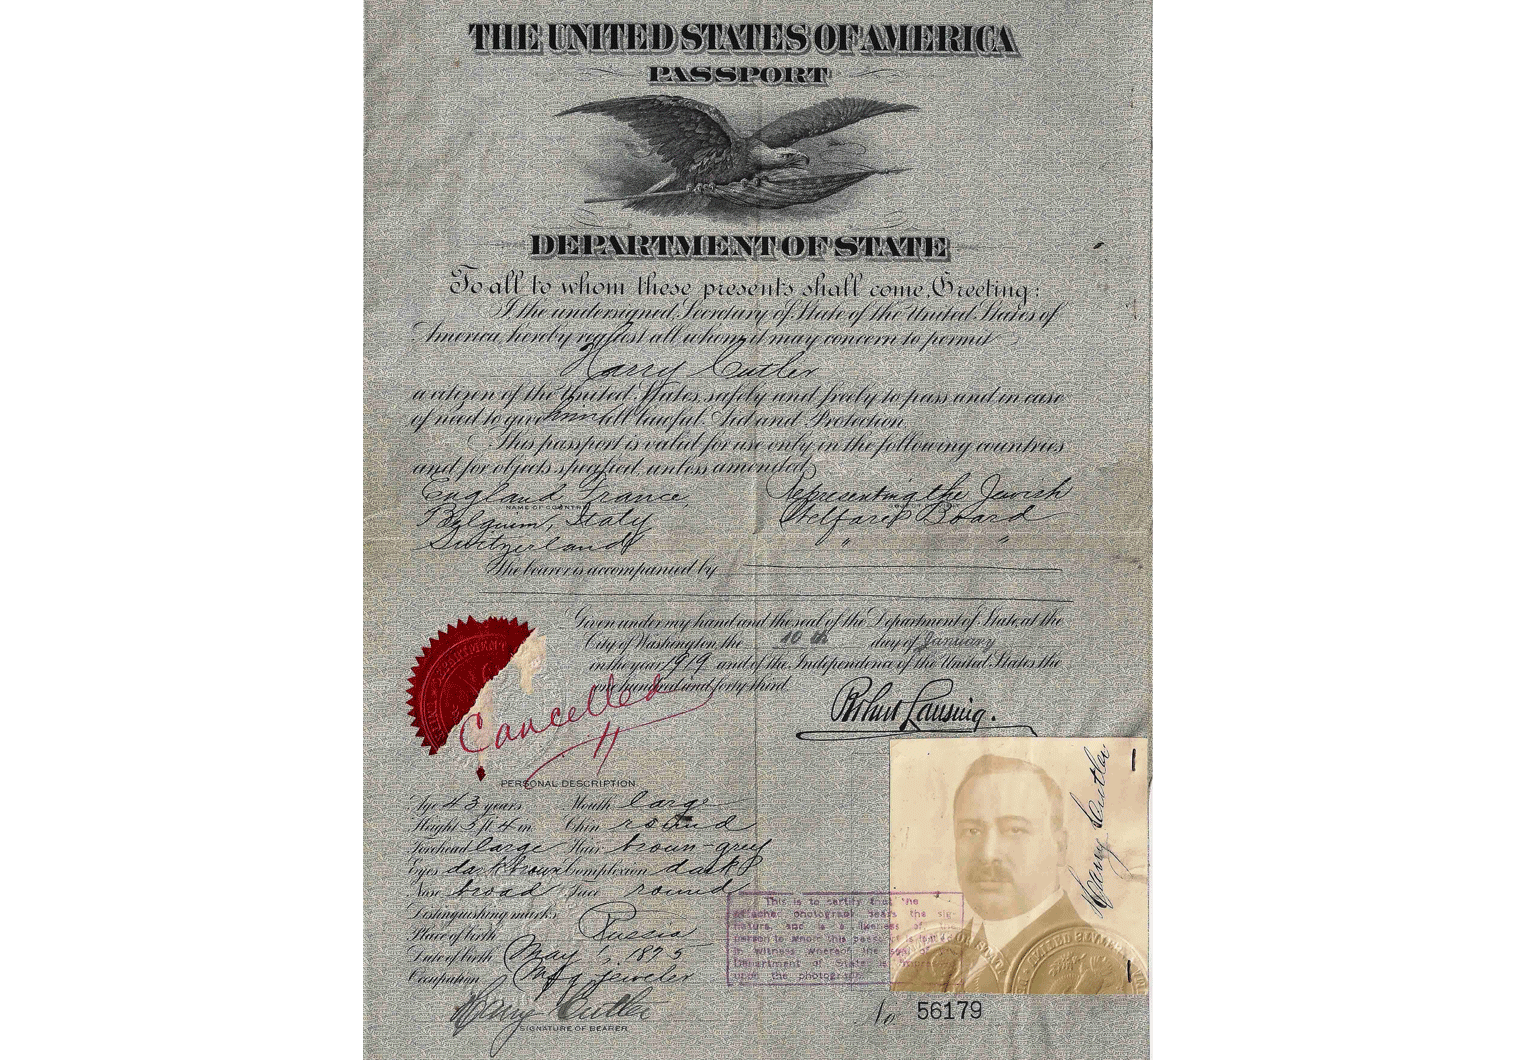 THE UNITED STATES OF AMERICA
PASSPORT
DEPARTMENT OF STATE
To all to whom these presents shall come, Greeting:
I the undersigned, Secretary of State of the United States of
America, hereby request all whom it may concern to permit
Harry Cutler
a citizen of the United States, safely and freely to pass and in case
of need to give him all lawful Aid and Protection
This passport is valid for use only in the following countries
and for objects specified, unless amended
England France, Representing the Jewish
NAME OF COUNTRY
Belguim, Italy Welfare Board
Switzerland " "
The bearer is accompanied by
Given under my hand and the seal of the Department of State, at the
City of Washington, the 10 th day of January
in the year 1919 and of the Independence of the United States the
one hundred and forty third.
Cancelled
Robert Lansing.
PERSONAL DESCRIPTION
Age 43 years Mouth large
Height 5 ft 4 in Chin round
Forehead large Hair brown-grey
Eyes dark brown Complexion dark
Nose broad Face round
Distinguishing marks
Place of birth Russia
Date of birth May 1, 1875
Occupation Mfg jeweler
Harry Cutler
SIGNATURE OF BEARER
Harry Cutler
This is to certify that the
attached photograph bears the sig-
nature, and is a likeness of the
person to whom this passport is issued
in witness whereof the seal of the
Department of State is impressed
upon the photograph.
No 56179